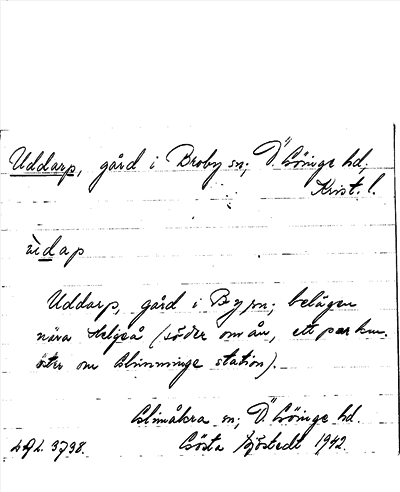 Uddarp, gård i Broby sn; Ö. Göinge hd,
Krist. l.
ùdap
Uddarp, gård i By sn; belägen
nära Helgeå (söder om ån, ett par km.
öster om Glimminge station).
Glimåkra sn; Ö. Göinge hd.
LAL. 3738. Gösta Sjöstedt 1942.